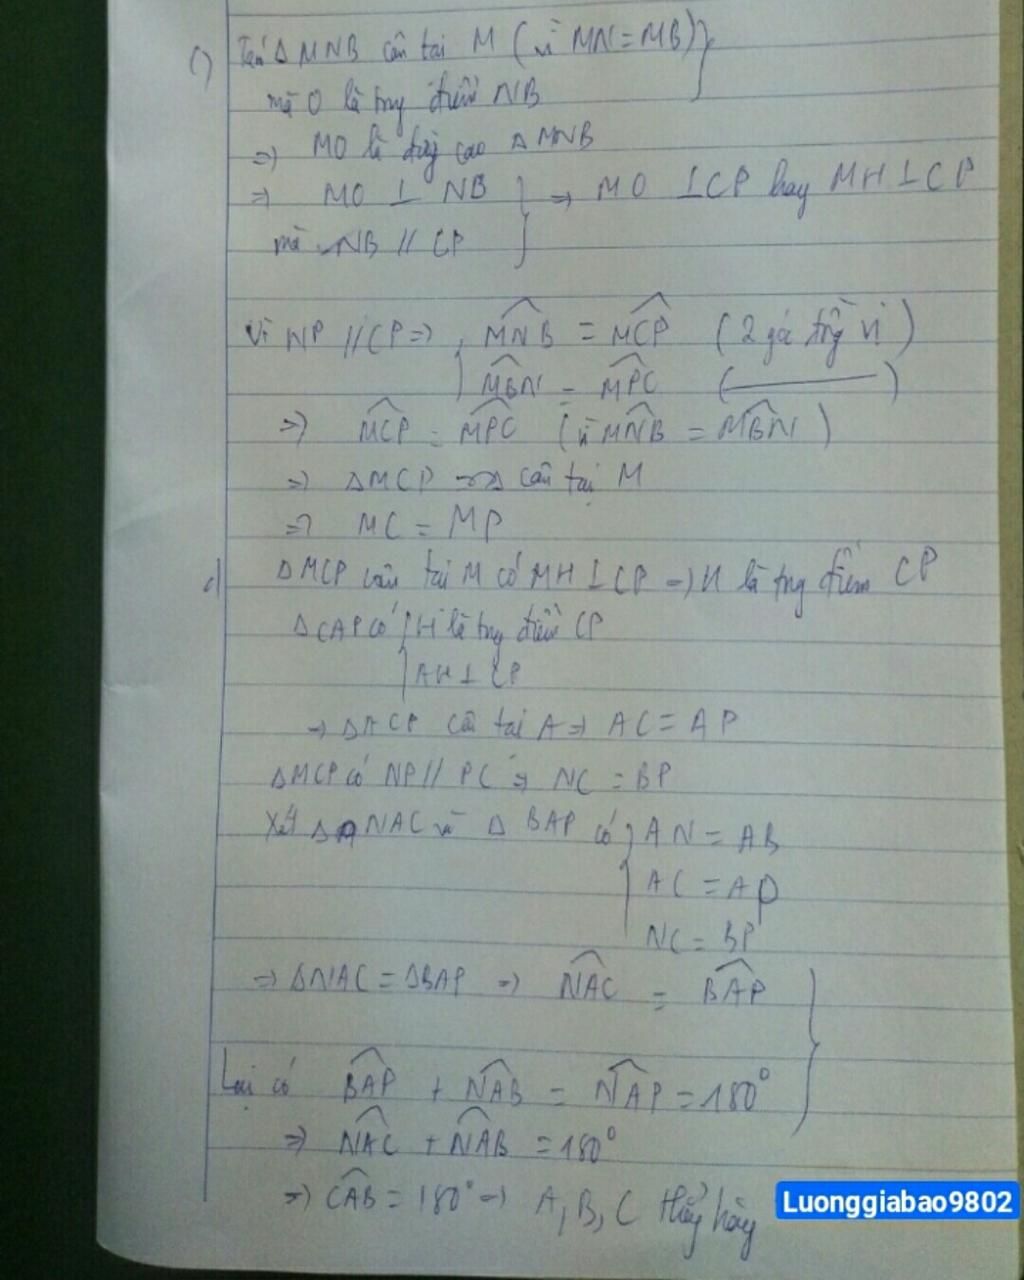 c) Ta có Δ MNB cân tại M (vì MN = MB) }
mà O là trung điểm NB
=> MO là đường cao Δ MNB
=> MO ⊥ NB } => MO ⊥ CP hay MH ⊥ CP
mà NB // CP
Vì NP // CP => { MNB = MCP (2 góc đồng vị)
MBN = MPC ( ——— )
=> MCP = MPC (vì MNB = MBN)
=> ΔMCP cân tại M
=> MC = MP
d) ΔMCP cân tại M có MH ⊥ CP => H là trung điểm CP
ΔCAP có { H là trung điểm CP
AH ⊥ CP
=> ΔACP cân tại A => AC = AP
ΔMCP có NP // PC => NC = BP
Xét Δ NAC và Δ BAP có { AN = AB
AC = AP
NC = BP
=> ΔNAC = ΔBAP => NAC = BAP }
Lại có BAP + NAB = NAP = 180°
=> NAC + NAB = 180°
=> CAB = 180° => A, B, C thẳng hàng
Luonggiabao9802